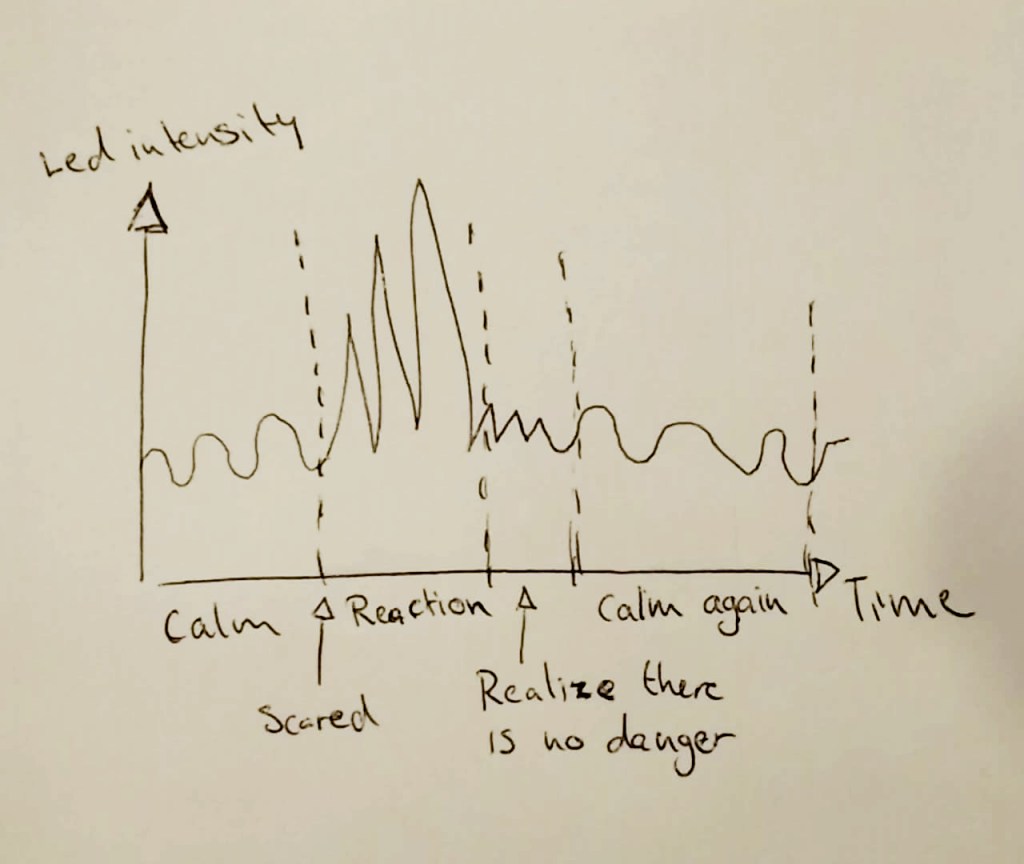 Led intensity
Calm
Reaction
Calm again
Time
Scared
Realize there
is no danger